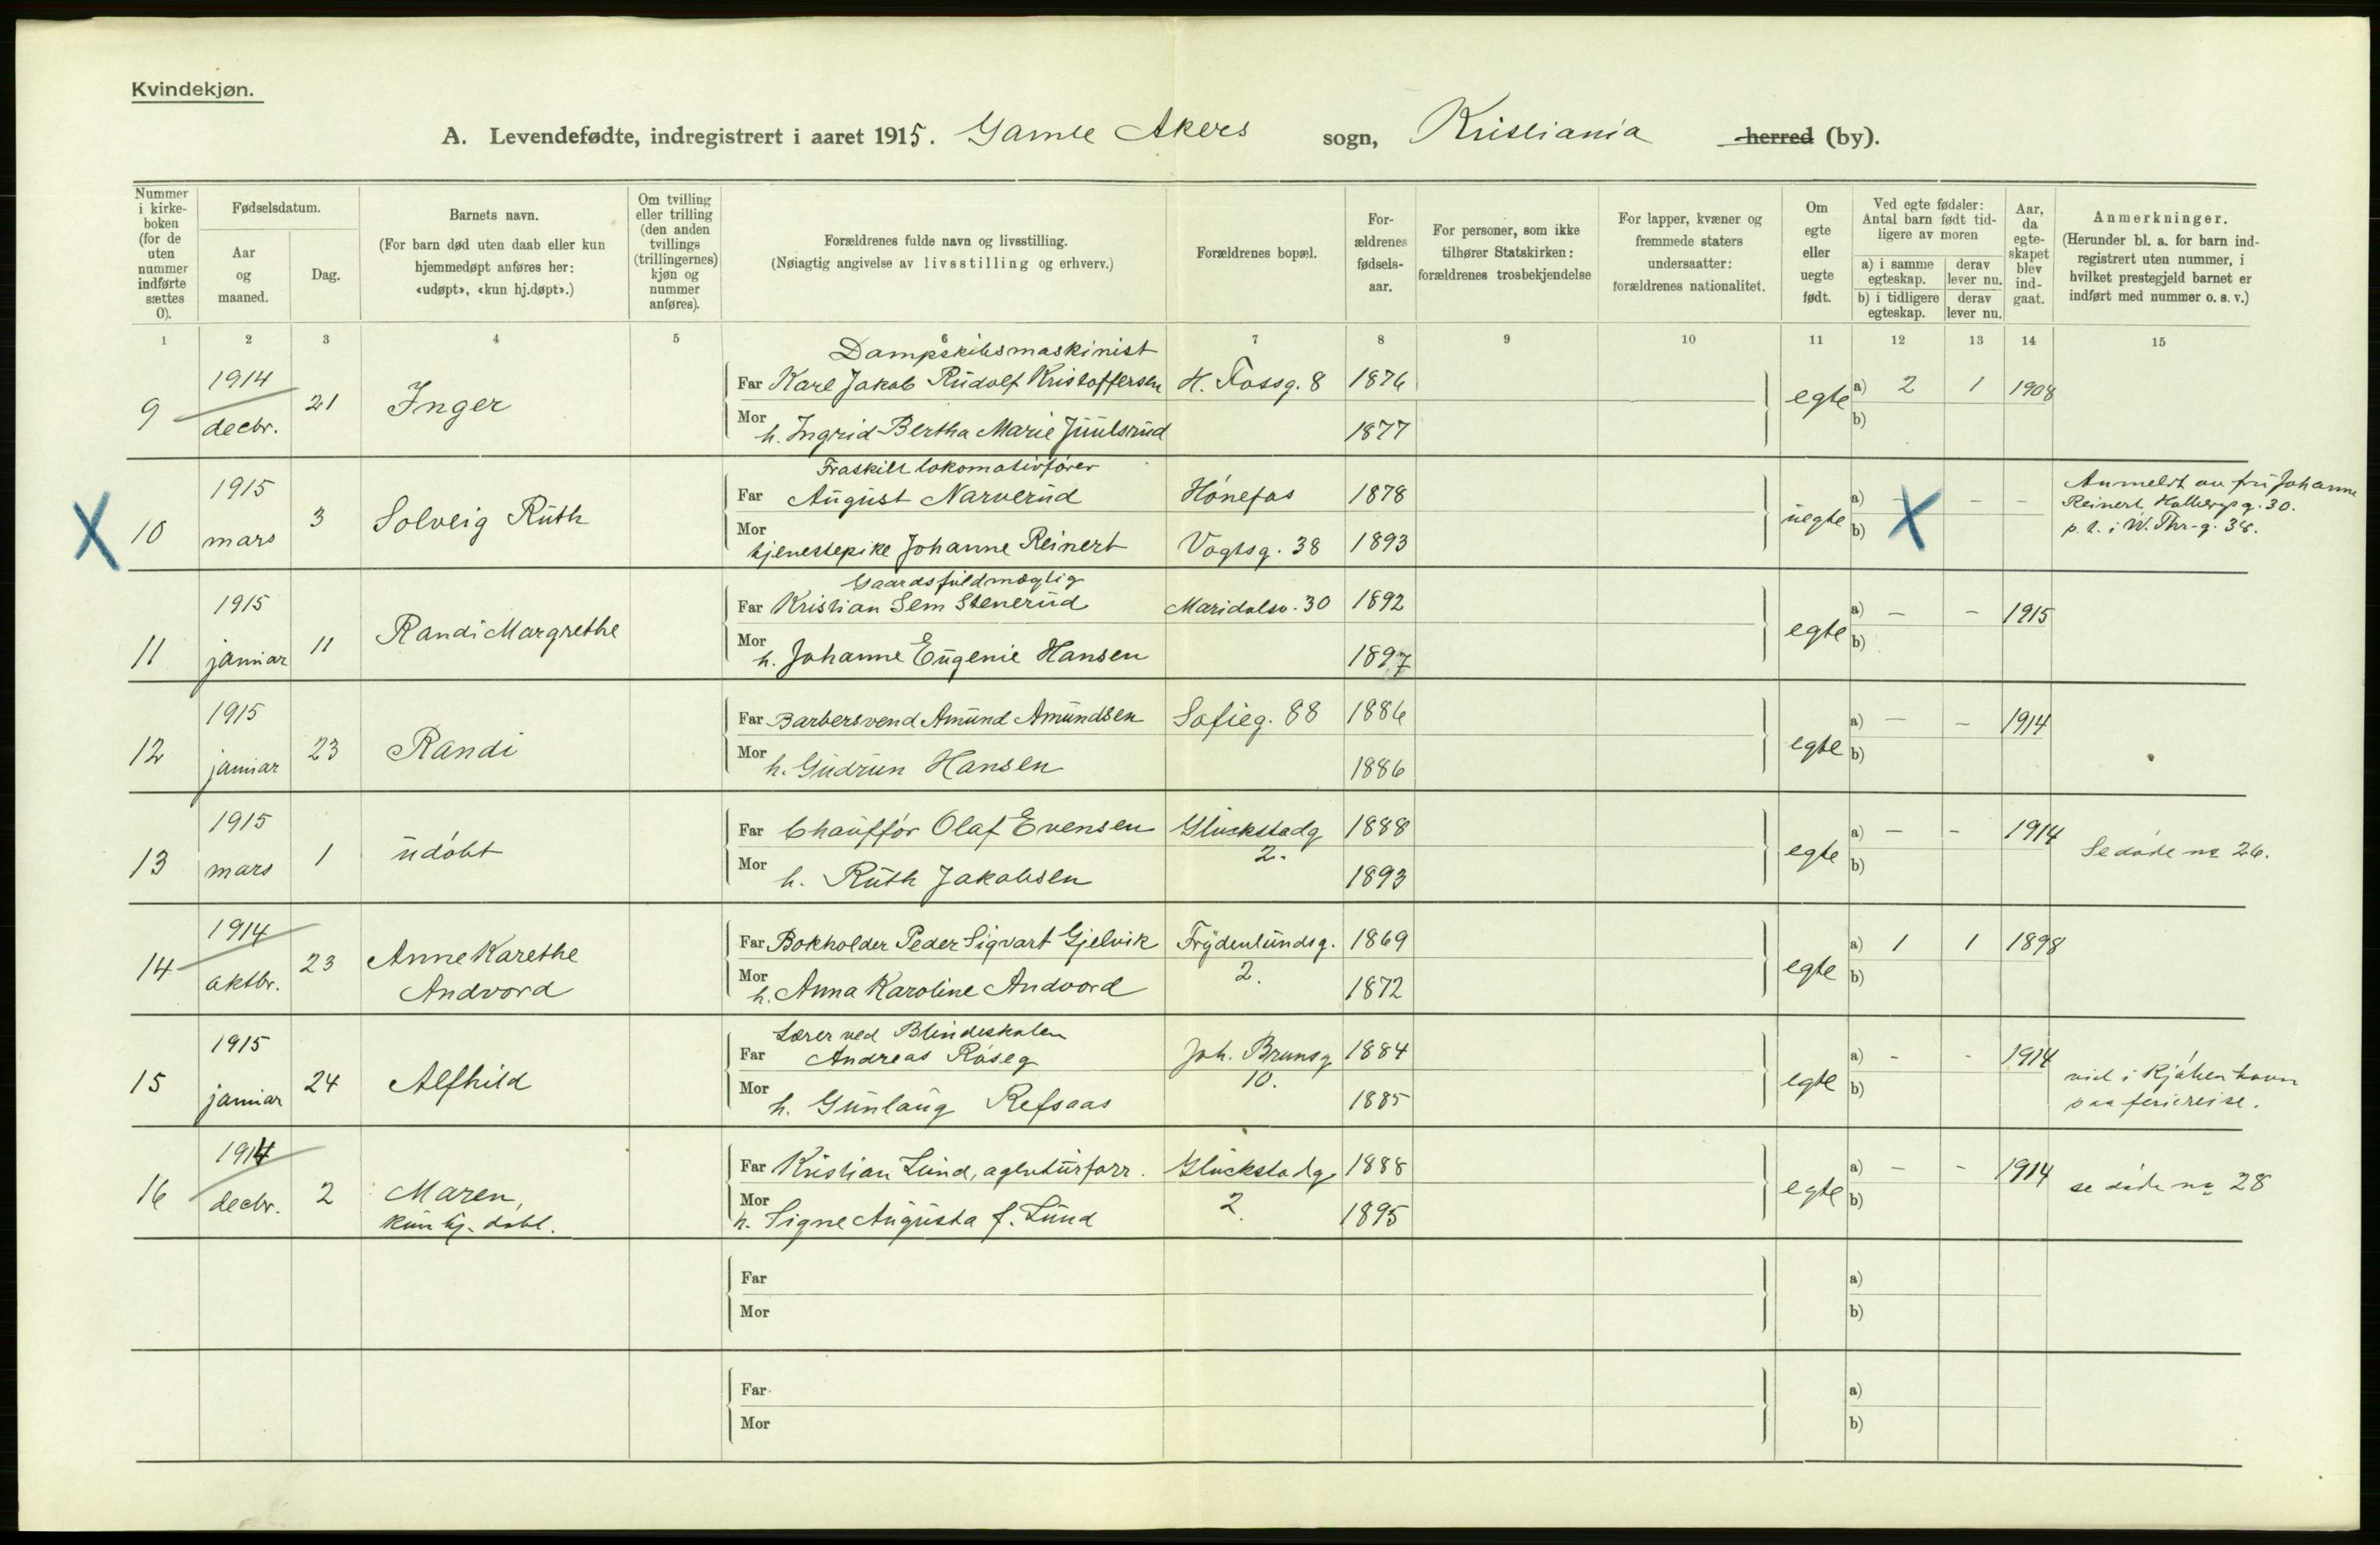 Kvindekjøn.
A. Levendefødte, indregistrert i aaret 1915. Gamle Akers sogn, Kristiania herred (by).
Nummer i kirke-boken (for de uten nummer indførte sættes 0).
Fødselsdatum.
Aar og maaned.
Dag.
Barnets navn.
(For barn død uten daab eller kun hjemmedøpt anføres her: «udøpt», «kun hj.døpt».)
Om tvilling eller trilling (den anden tvillings (trillingernes) kjøn og nummer anføres).
Forældrenes fulde navn og livsstilling.
(Nøiagtig angivelse av livsstilling og erhverv.)
Forældrenes bopæl.
For-ældrenes fødsels-aar.
For personer, som ikke tilhører Statskirken: forældrenes trosbekjendelse
For lapper, kvæner og fremmede staters undersaatter: forældrenes nationalitet.
Om egte eller uegte født.
Ved egte fødsler: Antal barn født tid-ligere av moren
a) i samme egteskap.
derav lever nu.
b) i tidligere egteskap.
derav lever nu.
Aar, da egte-skapet blev ind-gaat.
Anmerkninger.
(Herunder bl. a. for barn ind-registrert uten nummer, i hvilket prestegjeld barnet er indført med nummer o. s. v.)
1 2 3 4 5 6 7 8 9 10 11 12 13 14 15
9 1914 decbr. 21 Inger
Dampskibsmaskinist
Far Karl Jakob Rudolf Kristoffersen H. Fossg. 8 1876
Mor h. Ingrid Bertha Marie Juulsrud 1877
egte a) 2 1 1908
b)
X 10 1915 mars 3 Solveig Ruth
Fraskilt lokomotivfører
Far August Narverud Hønefos 1878
Mor tjenestepike Johanne Reinert Vogtsg. 38 1893
uegte a) - - -
b) X
Anmeldt av fru Johanne
Reinert, 30.
p. t. i W. Thr-g. 38.
11 1915 januar 11 Randi Margrethe
Gaardsfuldmægtig
Far Kristian Sem Stenerud Maridalsv. 30 1892
Mor h. Johanne Eugenie Hansen 1897
egte a) - - 1915
b)
12 1915 januar 23 Randi
Far Barbersvend Amund Amundsen Sofieg. 88 1886
Mor h. Gudrun Hansen 1886
egte a) - - 1914
b)
13 1915 mars 1 udøbt
Far Chauffør Olaf Evensen Glückstadg 2. 1888
Mor h. Ruth Jakobsen 1893
egte a) - - 1914
b)
Se døde no 26.
14 1914 oktbr. 23 Anne Karethe
Andvord
Far Bokholder Peder Sigvart Gjelvik Frydenlundsg. 2. 1869
Mor h. Anna Karoline Andvord 1872
egte a) 1 1 1898
b)
15 1915 januar 24 Alfhild
Lærer ved Blindeskolen
Far Andreas Røseg Joh. Brunsg 10. 1884
Mor h. Gunlaug Refsaas 1885
egte a) - - 1914
b)
vid i Kjøbenhavn
paa feriereise.
16 1914 decbr. 2 Maren,
kun hj. døbt.
Far Kristian Lund, agenturforr. Glückstadg 2. 1888
Mor h. Signe Augusta f. Lund 1895
egte a) - - 1914
b)
se døde no 28
Far
Mor
a)
b)
Far
Mor
a)
b)